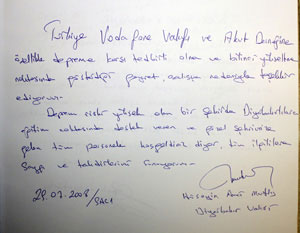 Türkiye Vodafone Vakfı ve Akut Derneğine
özellikle depreme karşı tedbirli olma ve bilinci yükseltme
noktasında gösterdiği gayret, çalışma nedeniyle teşekkür
ediyorum.
Deprem riski yüksek olan bir şehirde Diyarbakırlılara
eğitim noktasında destek veren ve güzel şehrimize
gelen tüm personele hoşgeldiniz diyor, tüm ilgililere
Saygı ve takdirlerimi sunuyorum.
29.07.2008/SALI
Hüseyin Avni Mutlu
Diyarbakır Valisi